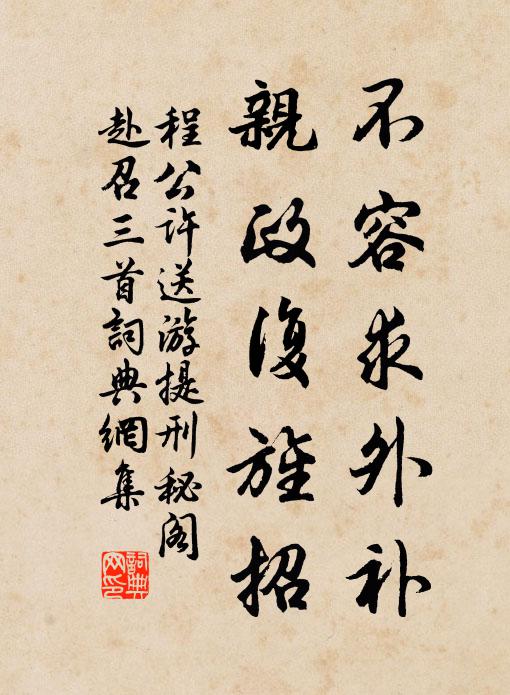 不容求外补
親政復旌招
程公许送游提刑秘阁
赴召三首詞典網集
詞典网印